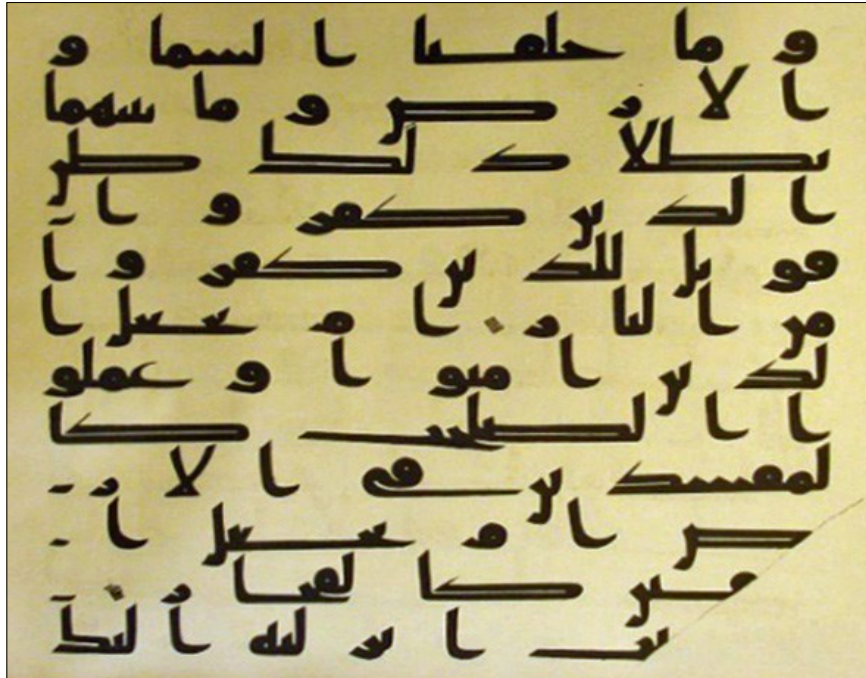 و ما خلقنا السما و
الارض و ما بينهما
بطلا ذلك ظن
الذين كفروا
فويل للذين كفروا
من النار ام نجعل ا
لذين امنوا و عملو
ا الصلحت كا
لمفسدين في الار
ض ام نجعل ا
متقين كالفجا
كتب انزلنه اليك